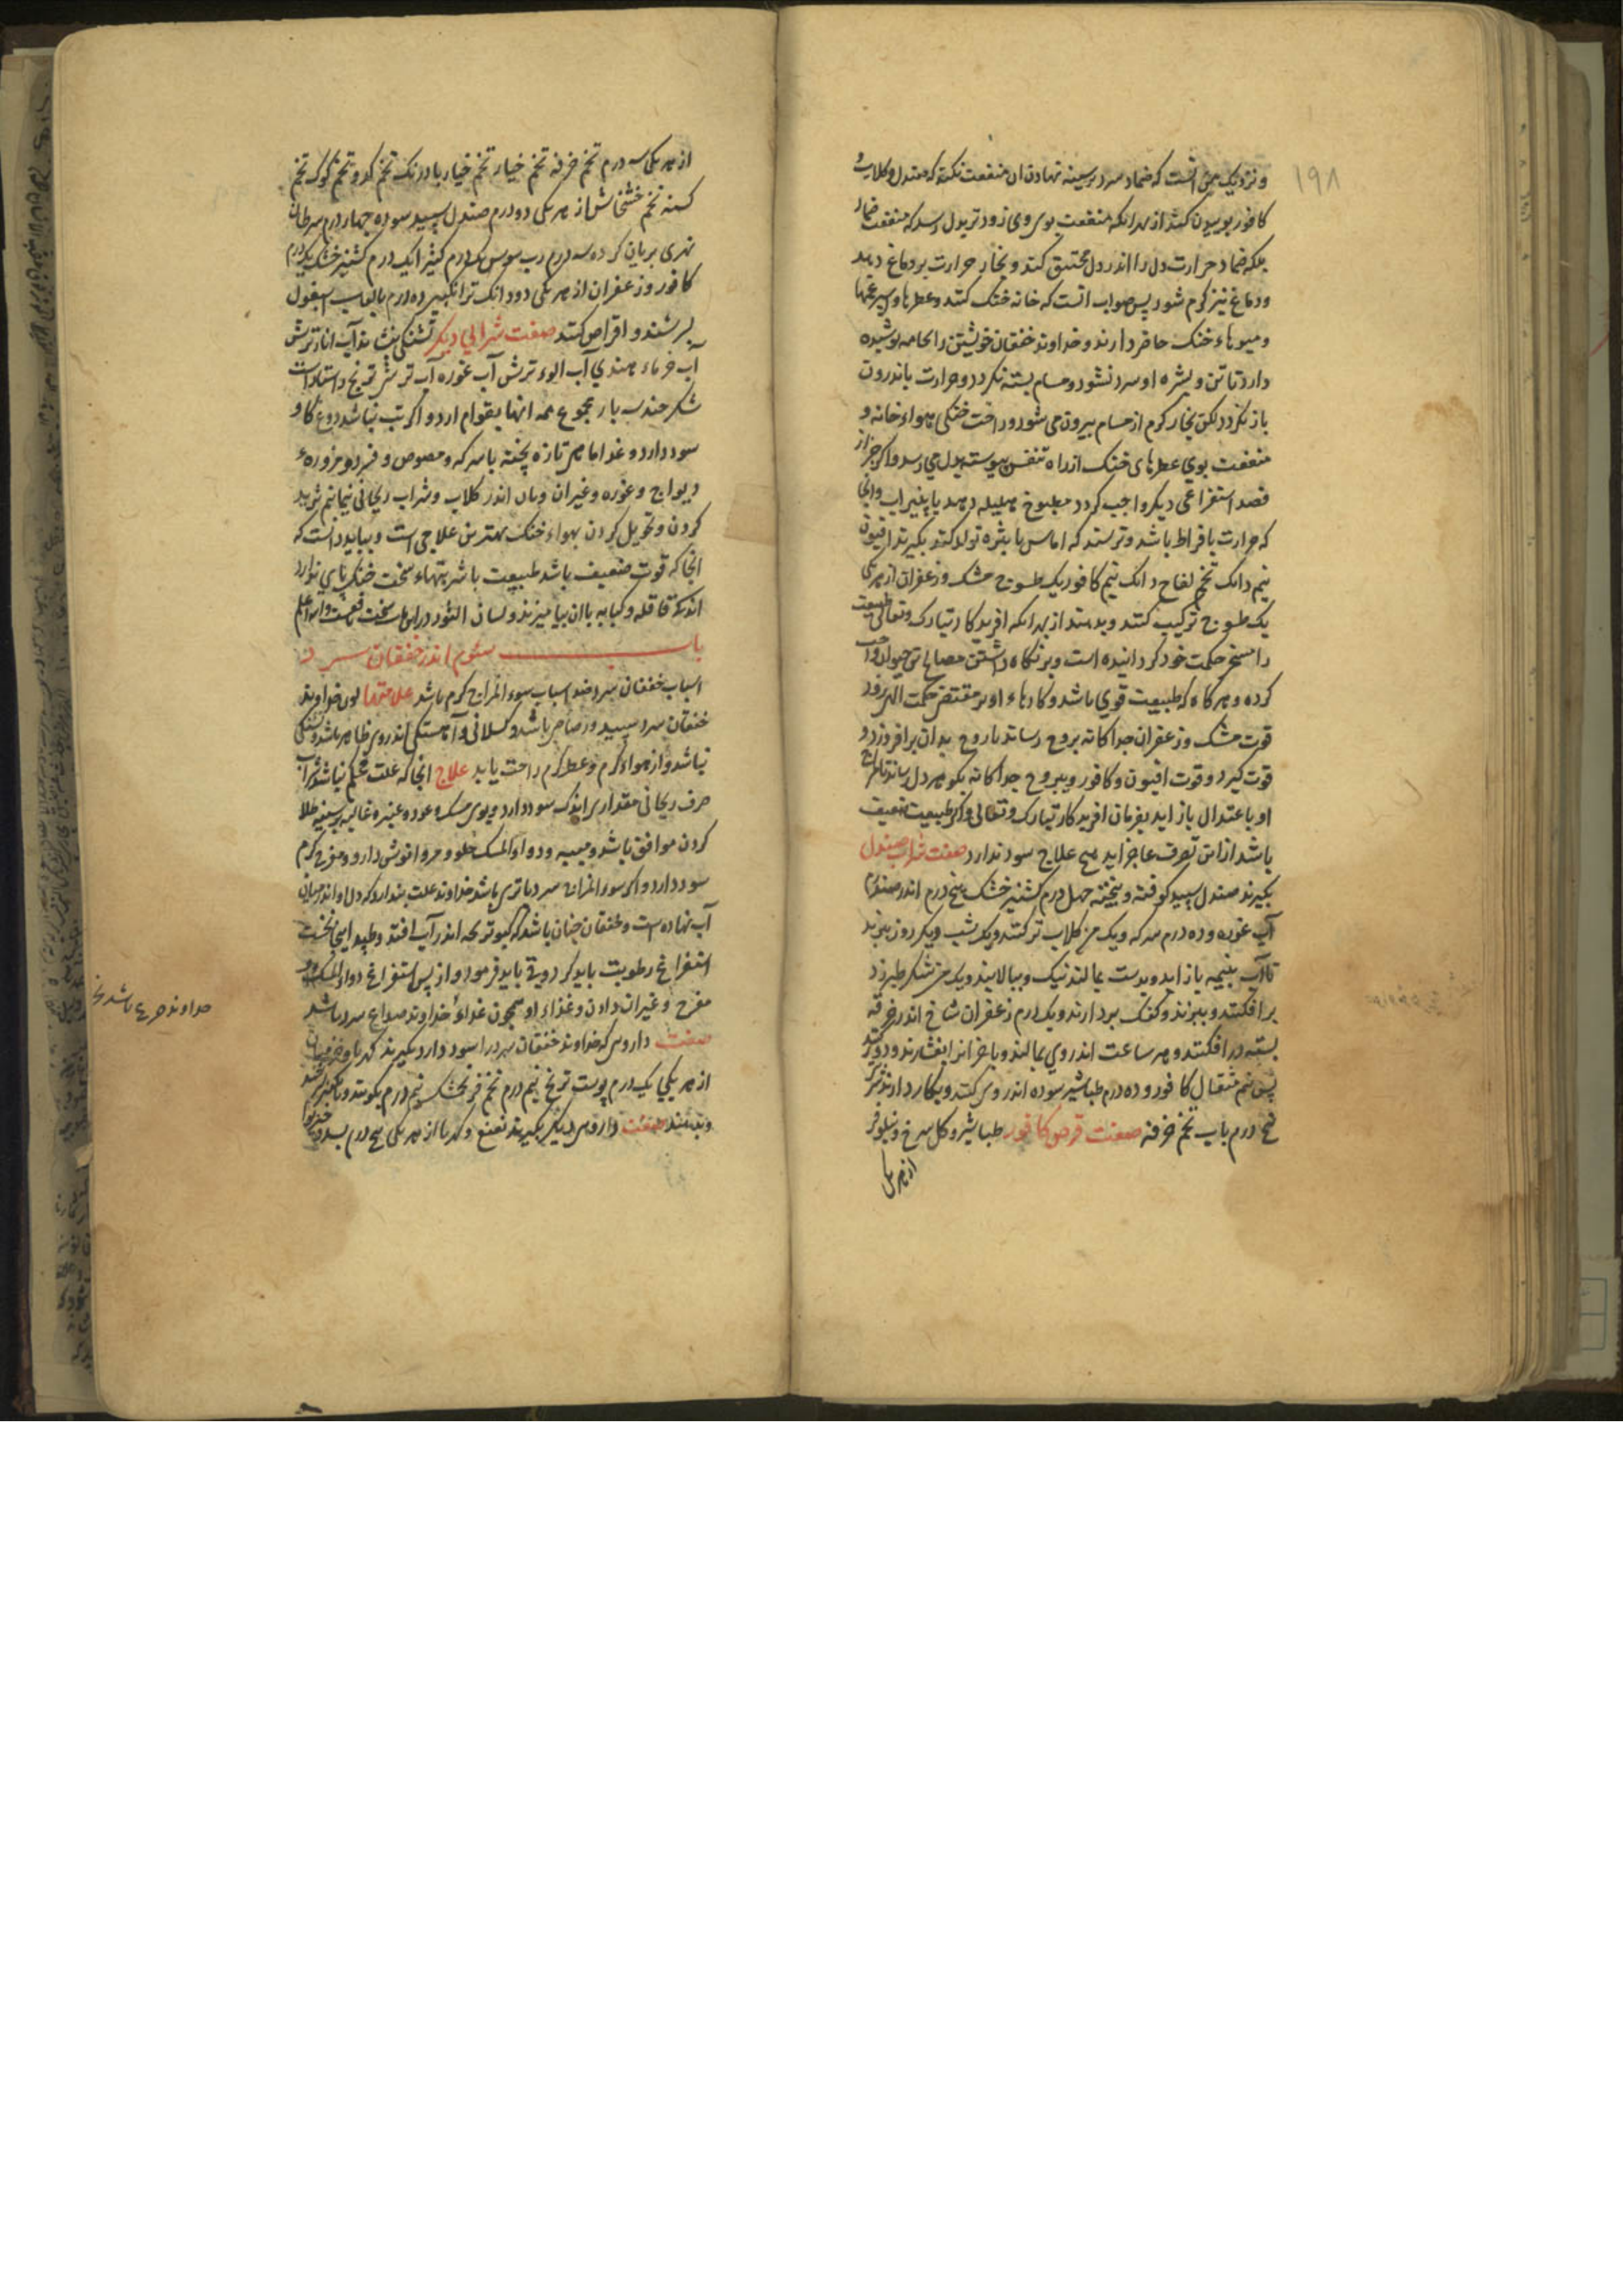 ١٩٨
و نزدیک من آنست که ضماد سرد بر سینه نهادن آن منفعت نکند که صندل و کلاب و
کافور بوییدن کند از بهر آنکه منفعت بوی وی زودتر بدل رسد که منفعت ضماد
بلکه ضماد حرارت دل را اندر دل محتقن کند و بخار حرارت بر دماغ دهد
و دماغ نیز کرم شود پس صواب آنست که خانه خنک کنند و عطرها و سپرغمها
و میوهاء خنک حاضر دارند و خداوند خفقان خویشتن را بجامه پوشیده
دارد تا تن و بشره او سرد نشود و مسام بسته نکردد و حرارت باندرون
باز نکردد لکن بخار کرم از مسام بیرون می شود و راحت خنکی هواء خانه و
منفعت بوی عطرهای خنک از راه تنفس پیوسته بدل می رسد و اکر جز از
فصد استفراغی دیکر واجب کردد مطبوخ هلیله دهند یا پنیراب و آنجا
که حرارت بافراط باشد و ترسند که اماس یا بثره تولد کند بکیرند افیون
نیم دانک تخم لفاح دانک نیم کافور یک طسوج مشک و زعفران از هر یکی
یک طسوج ترکیب کنند و بدهند از بهر آنکه افریدکار تبارک و تعالی طبیعت
را مسخر حکمت خود کردانیده است و بر نکاه داشتن مصالح تن حیوان واجب
کرده و هر کاه که طبیعت قوی باشد و کارهاء او بر مقتضی حکمت الهی رود
قوت مشک و زعفران جداکانه بروح رساند تا روح بدان برافروزد و
قوت کیرد و قوت افیون و کافور و یبروح جداکانه بکوهر دل رساند تا مزاج
او باعتدال باز اید بفرمان افریدکار تبارک و تعالی و اکر طبیعت ضعیف
باشد از این تصرف عاجز اید هیچ علاج سود ندارد صفت شراب صندل
بکیرند صندل سپید کوفته و بیخته چهل درم کشنیز خشک پنج درم اندر صد درم
آب غوره و ده درم سرکه و یک من کلاب تر کنند و یک شب و یک روز بنهند
تا آب بنیمه باز اید و بدست بمالند نیک و ببالایند و یک من شکر طبرزد
برافکنند و ببزند و کفک بردارند و یک درم زعفران شاخ اندر خرقه
بسته درافکنند و هر ساعت اندر وی بمالند و باخر انرا بفشارند و دور کنند
پس نیم مثقال کافور و ده درم طباشیر سوده اندر وی کنند و بکار دارند شربت
پنج درم باب تخم خرفه صفت قرص کافور طباشیر و کل سرخ و نیلوفر
از هر یکی
از هر یکی سه درم تخم خرفه تخم خیار تخم خیار بادرنک تخم کدو تخم کوک تخم
کسنه تخم خشخاش از هر یکی دو درم صندل سپید سوده چهار درم سرطان
نهری بریان کرده سه درم رب سوس یک درم کثیرا یک درم کشنیز خشک یک درم
کافور و زعفران از هر یکی دو دانک ترانکبین ده درم بلعاب اسبغول
بسرشند و اقراص کنند صفت شرابی دیکر تشنکی بنشاند آب انار ترش
آب خرماء هندی آب الوء ترش آب غوره آب ترشی ترنج راستاراست
شکر چندن بار مجموع همه اینها بقوام ارد و اکر تب نباشد دوغ کاو
سود دارد و غذا ماهی تازه پخته با سرکه و مصوص و قریص و مزوره
ریواج و غوره و غیر آن و نان اندر کلاب و شراب ریحانی نیمانیم ترید
کردن و تحویل کردن بهواء خنک بهترین علاجی است و بباید دانست که
انجا که قوت ضعیف باشد طبیعت با شربتهاء سخت خنک پای ندارد
اندکی قاقله و کبابه با ان بیامیزند و لسان الثور در این باب سخت نافع است والله اعلم
باب سوم اندر خفقان سرد
اسباب خفقان سرد ضد اسباب سوء المزاج کرم باشد علامتها لون خداوند
خفقان سرد سپید و رصاصی باشد و کسلانی و آهستکی اندر وی ظاهر باشد و تشنکی
نباشد و از هواء کرم و عطر کرم راحت یابد علاج انجا که علت محکم نباشد شراب
صرف ریحانی مقداری اندک سود دارد و بوی مشک و عود و عنبر و غالیه بر سینه طلا
کردن موافق باشد و میبه و دواء المسک حلو و مر و انوش دارو و مفرح کرم
سود دارد و اکر سوء المزاج سرد با تری باشد خداوند علت پندارد که دل او اندر میان
آب نهاده است و خفقان چنان باشد که کبوتر بچه اندر آب افتد و طپد اینجا نخست
استفراغ رطوبت باید کرد و قی باید فرمود و از پس استفراغ دواء المسک و
مفرح و غیر ان دادن و غذاء او همچون غذاء خداوند صداع سرد باشد
صفت داروی که خداوند خفقان سرد را سود دارد بکیرند کهربا و جندبیدستر
از هر یکی یک درم پوست ترنج نیم درم تخم فرنجمشک نیم درم بکوبند و بانکبین بسرشند
و بدهند صفت داروی دیکر بکیرند نعنع و کهربا از هر یکی پنج درم بسد و
خداوند صرع باشد